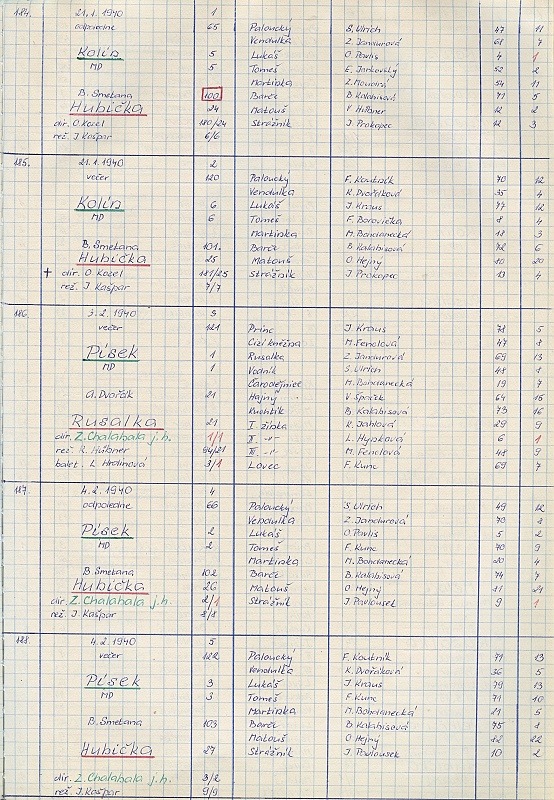 184. 21.1.1940 1
odpoledne 65 Paloucký S. Ulrich 47 11
Vendulka Z. Jandurová 68 7
Kolín 5 Lukáš O. Pavlis 4 1
MD 5 Tomeš E. Jankovský 52 2
Martinka 54 11
B. Smetana 100 Barče B. Kalabisová 71 5
Hubička 24 Matouš V. Hübner 12 2
dir. O. Kozel 180/24 Strážník J. Prokopec 12 3
rež. J. Kašpar 6/6
185. 21.1.1940 2
večer 120 Paloucký F. Koutník 70 12
Vendulka K. Dvořáková 35 4
Kolín 6 Lukáš J. Kraus 77 12
MD 6 Tomeš F. Borovička 8 4
Martinka M. Bohdanecká 18 3
B. Smetana 101. Barče B. Kalabisová 72 6
Hubička 25 Matouš O. Hejný 10 20
+ dir. O. Kozel 181/25 Strážník J. Prokopec 13 4
rež. J. Kašpar 7/7
186. 3.2.1940 3
večer 121 Princ J. Kraus 78 5
Cizí kněžna M. Fenclová 47 8
Písek 1 Rusalka Z. Jandurová 69 13
MD 1 Vodník S. Ulrich 48 8
Čarodějnice M. Bohdanecká 19 7
A. Dvořák 21 Hajný V. Špaček 64 15
Kuchtík B. Kalabisová 73 16
Rusalka 21 I. žínka R. Jahlová 29 9
dir. Z. Chalabala j.h. 1/1 II. -"- L. Hypková 6 1
rež. R. Hübner 94/21 III. -"- M. Fenclová 48 9
balet. L. Hrdinová 3/1 Lovec F. Kunc 69 7
187. 4.2.1940 4
odpoledne 66 Paloucký S. Ulrich 49 12
Vendulka Z. Jandurová 70 8
Písek 2 Lukáš O. Pavlis 5 2
MD 2 Tomeš F. Kunc 70 9
Martinka M. Bohdanecká 20 4
B. Smetana 102 Barče B. Kalabisová 74 7
Hubička 26 Matouš O. Hejný 11 21
dir. Z. Chalabala j.h. 2/1 Strážník J. Pavlousek 9 1
rež. J. Kašpar 8/8
188. 4.2.1940 5
večer 122 Paloucký F. Koutník 71 13
Vendulka K. Dvořáková 36 5
Písek 3 Lukáš J. Kraus 79 13
MD 3 Tomeš F. Kunc 71 10
Martinka M. Bohdanecká 21 5
B. Smetana 103 Barče B. Kalabisová 75 8
Matouš O. Hejný 12 22
Hubička 27 Strážník J. Pavlousek 10 2
dir. Z. Chalabala j.h. 3/2
rež. J. Kašpar 9/9